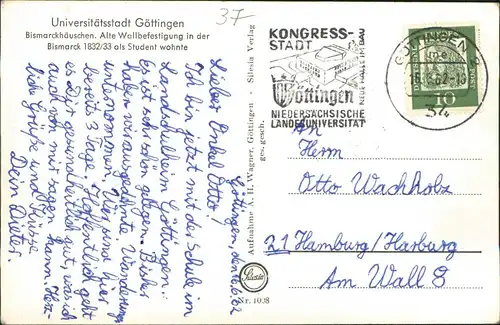 Universitätsstadt Göttingen
Bismarckhäuschen. Alte Wallbefestigung in der
Bismarck 1832/33 als Student wohnte
37
Göttingen, den 16.6.62
Lieber Onkel Otto!
Ich bin jetzt mit der Schule im
Landschulheim Göttingen.
Es ist sehr schön gelegen. Bisher
haben wir ausgedehnte Wanderungen
unternommen. Wir sind hier
bereits 3 Tage. Hoffentlich geht
es Dir gesundheitlich gut, was ich
auch von mir sagen kann. Herz-
liche Grüße und Küsse
Dein Dieter.
Aufnahme A. H. Wagner, Göttingen - Silesia Verlag
ges. gesch.
Silesia
Nr. 1008
KONGRESS-
STADT
Göttingen
NIEDERSÄCHSISCHE
LANDESUNIVERSITÄT
GÖTTINGEN 2
34
10
An
Herrn
Otto Wachholz
21 Hamburg/Harburg
Am Wall 8